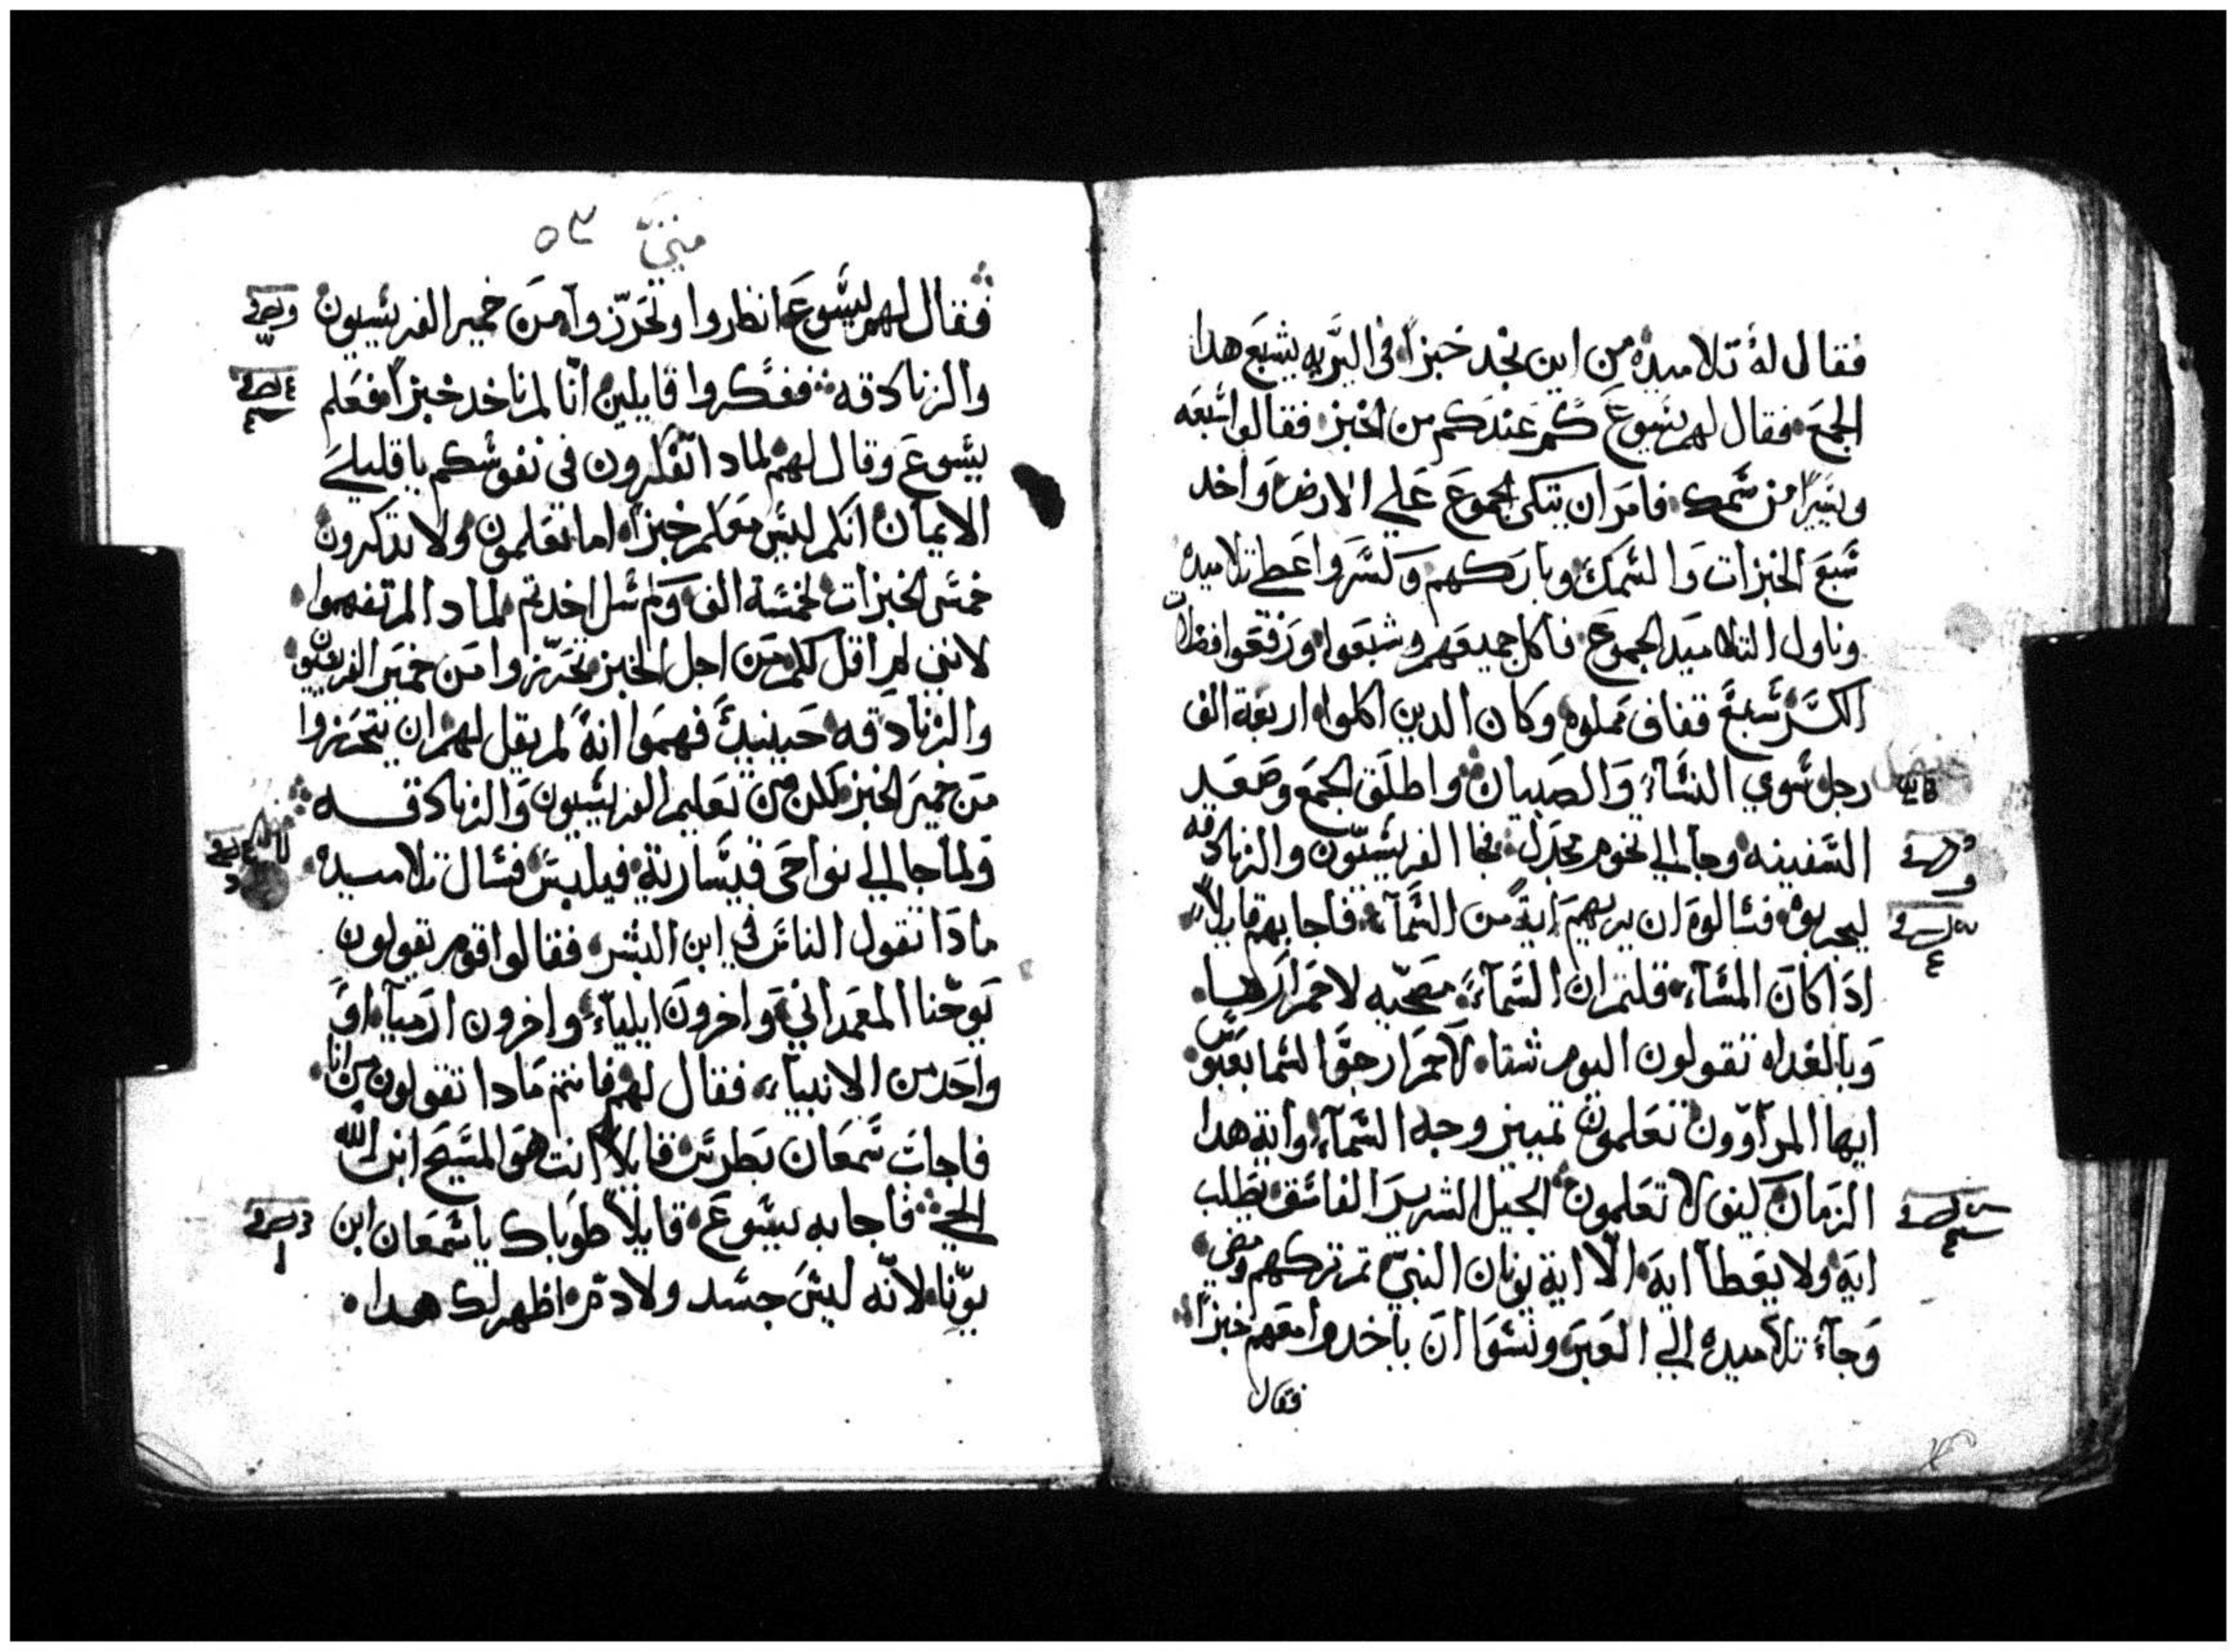 فقال لهُ تلاميده من اين نجد خبزاً في البَّريه يشبعَ هدا
الجمعَ فقال لهم يسَوعَ كم عندكم من الخبز فقالوا سَبعَه
ويسَيرًا من سَمك فامرَ ان يتكي الجموعَ عَلي الارض وَاخد
سَبعَ الخبزات وَالسَمك وباركهم وَكسَر واعَطي تلاميده
وناول التلاميد الجموعَ فاكل جميعَهم وشبعَوا ورَفعَوا فضلات
الكسَر سَبعَ قفاف مملوه وكان الدين اكلوا اربعَة الف
رجل سَوي النسَآء وَالصَبيان واطلَق الجمعَ وصَعَد
السَفينه وجا الي تخوم مجدَل فجا الفريسَيّون والزنادقه
ليجربوه فسَالوهَ ان يريهم ايةً من السَمآء فاجابهم قايلاً
ادَا كانَ المسَآء قلتم ان السَمآءَ مصَحّيه لاحمَرارَها
وَبالغداه تقولون اليوم شتا لاحمَرار جوَّ السَما بعَبوسَ
ايها المرآوون تعَلمون تمييز وجه السَمآء واية هدا
الزمانَ كيف لا تعَلمون الجيل الشرير الفاسَق يطلب
ايةَ ولا يعَطا ايةَ الّا اية يونان النبيّ تم تركهم ومضي
وَجآءَ تلاميده الي العَبرَ ونسَوا انَ ياخدوا معَهم خبزاً
فقال
متيّ ٥٣
فقال لهم يسَوعَ انظروا وتحَرّزوا منَ خمير الفريسَيون
والزنادقه ففكّروا قايلين انّا لم ناخد خبزاً فعَلم
يسَوعَ وقال لهم لمادا تفكرون في نفوسَكم يا قليلي
الايمان انكم ليسَ معَكم خبزاً اما تعَلمون ولا تدكرون
خمسَ الخبزات لخمسَة الف وَكم سَل اخدتم لمادا لم تفهموا
لانني لم اقل لكم منَ اجل الخبز تحَرّزوا منَ خميَر الفريسيون
والزنادقه حَينيدً فهمَوا انهً لم يقل لهم ان يتحَرزوا
منَ خميَر الخبز لكن من تعَليم الفريسَيون وَالزنادقــه
ولما جا الي نواحَي قيسَارية فيلبسَ فسَال تلاميده
مادَا تقول الناسَ في ابن البشر فقالوا قوم تقولون
يوحّنا المعَمداني وَاخرونَ ايلياء واخرون ارَميآ اوَ
واحَد من الانبياء فقال لهم فانتم مَادا تقولون من انا
فاجابَ سَمعَان بَطرسَ قايلاً انت هوَ المسَيح ابن الله
الحيّ فاجابه يسَوعَ قايلاً طوَباك يا سَمعَان ابن
يوّنا لانّه ليسَ جسَد ولا دمّ اظهر لك هدا